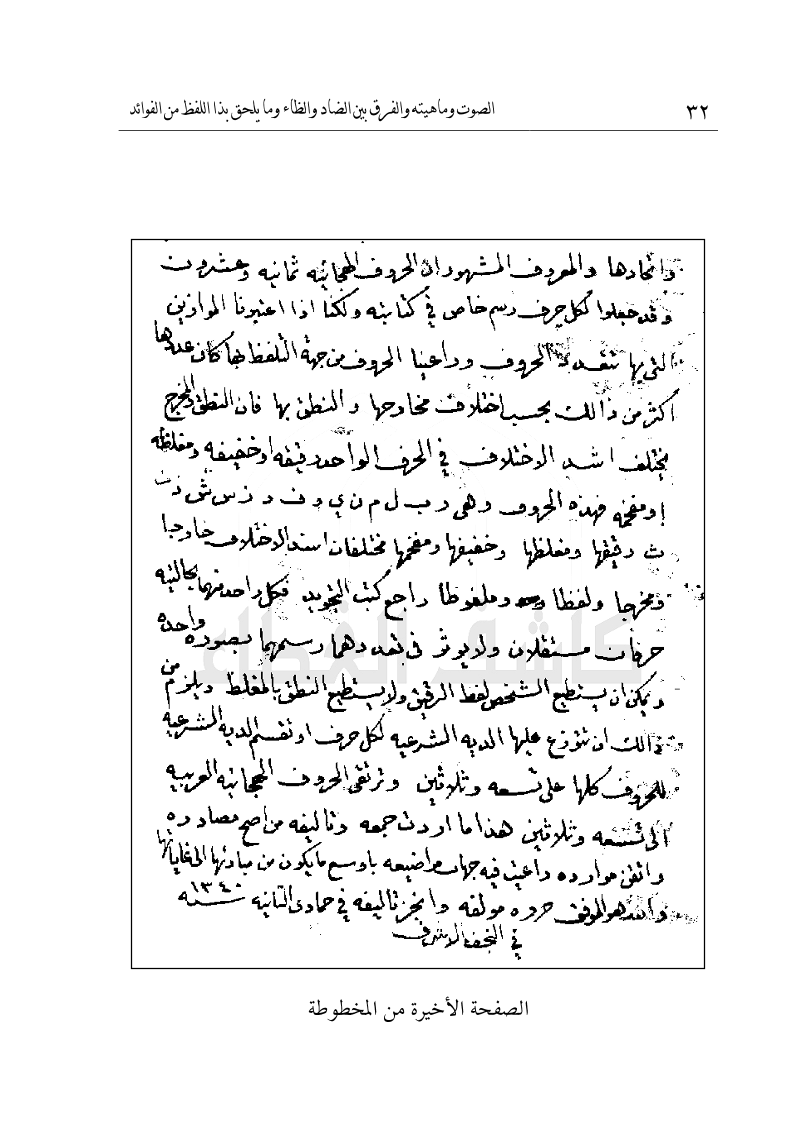 ٣٢
الصوت وماهيته والفرق بين الضاد والظاء وما يلحق بذا اللفظ من الفوائد
واتحادها والمعروف المشهور ان الحروف الهجائيه ثمانيه وعشرون
وقد جعلوا لكل حرف رسم خاص في كتابته ولكنا اذا اعتبرنا الموازين
التي بها تتعدد الحروف وراعينا الحروف من جهة التلفظ بها كان عددها
اكثر من ذالك بحسب اختلاف مخارجها والنطق بها فان النطق والمخرج
يختلف اشد الاختلاف في الحرف الواحد رقيقه او خفيفه ومغلظه
او مفخمه فهذه الحروف وهي ر ب ل م ن ي و ف د ز س ش ذ ت
ث رقيقها ومغلظها وخفيفها ومفخمها مختلفان اشد الاختلاف خارجا
ومخرجا ولفظا وملفوظا راجع كتب التجويد فكل واحد منهما بحالتيه
حرفان مستقلان ولا يوثر في تعددهما رسمهما بصورة واحده
ويمكن ان يستطيع الشخص لفظ الرقيق ولا يستطيع النطق بالمغلظ ويلزم من
ذالك ان تتوزع عليها الديه الشرعيه لكل حرف او تقسم الديه الشرعيه
للحروف كلها على تسعه وثلاثين وترتقي الحروف الهجائيه العربيه
الى تسعه وثلاثين هذا ما اردت جمعه وتاليفه من اصح مصادره
واتقن موارده راعيت فيه جهات مواضيعه باوسع ما يكون من مبادئها الى غاياتها
والله هو الموفق حرره مولفه وانجز تاليفه في جمادى الثانيه سنه ١٣٤٠
في النجف الاشرف
كاشف الغطاء
الصفحة الأخيرة من المخطوطة